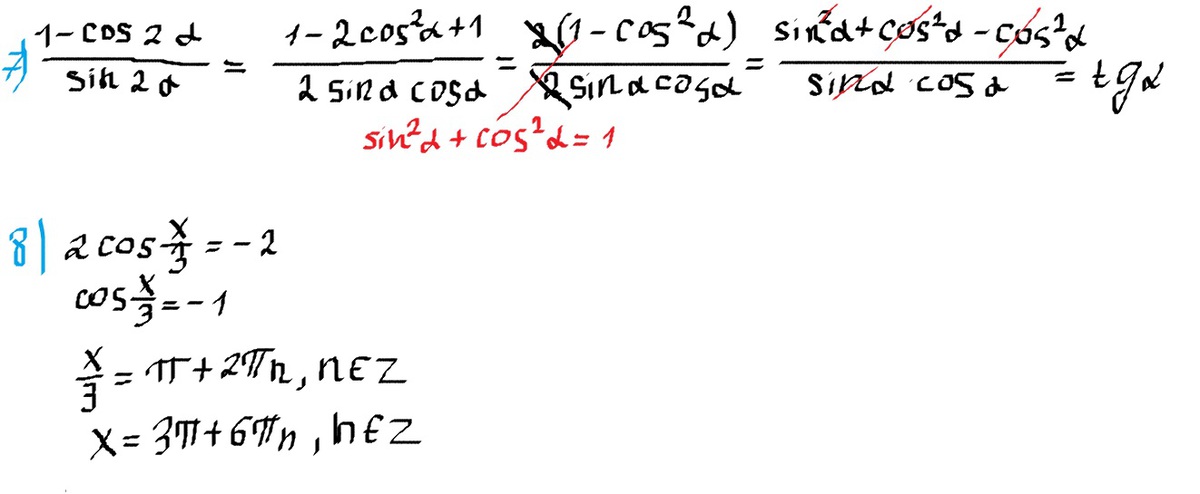 7) (1-cos2α)/(sin2α) = (1-2cos²α+1)/(2sinαcosα) = (2(1-cos²α))/(2sinαcosα) = (sin²α+cos²α-cos²α)/(sinα cosα) = tgα
sin²α+cos²α=1
8) 2cos x/3 = -2
cos x/3 = -1
x/3 = π+2πn, n∈Z
x = 3π+6πn, n∈Z